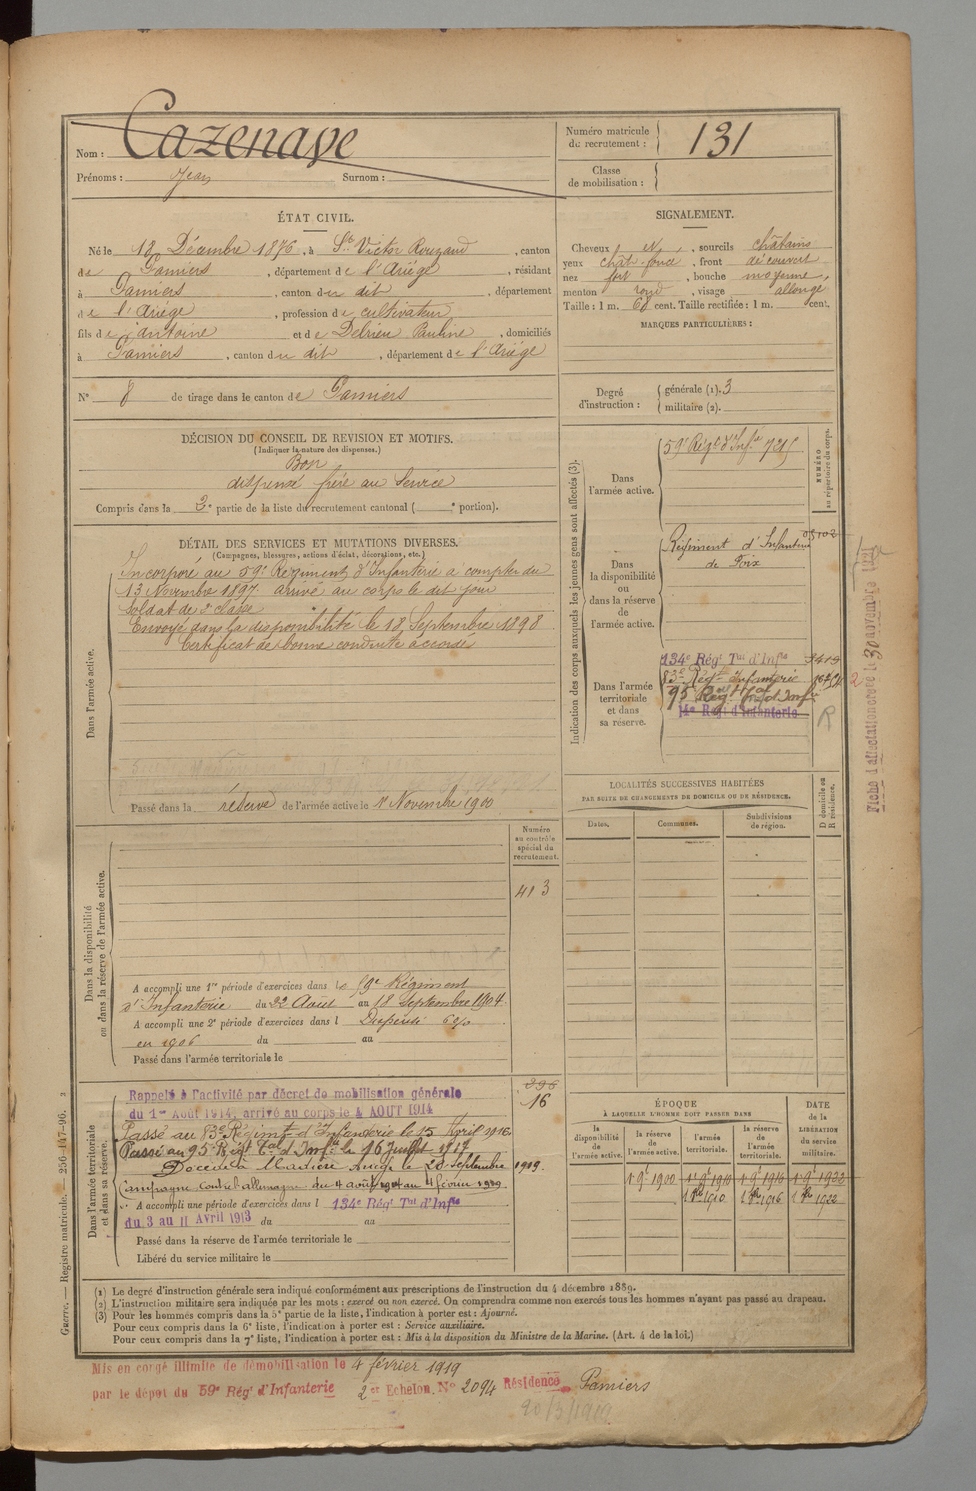 Nom : Cazenave
Prénoms : Jean Surnom :
Numéro matricule du recrutement : 131
Classe de mobilisation :
ÉTAT CIVIL.
Né le 12 Décembre 1876, à St Victor Rouzaud, canton
de Pamiers, département de l'Ariège, résidant
à Pamiers, canton du dit, département
de l'Ariège, profession de cultivateur
fils de Antoine et de Delrieu Pauline, domiciliés
à Pamiers, canton du dit, département de l'Ariège
N° 8 de tirage dans le canton de Pamiers
SIGNALEMENT.
Cheveux N, sourcils châtains
yeux chât. foncé, front découvert
nez fort, bouche moyenne,
menton rond, visage allongé
Taille : 1 m. 68 cent. Taille rectifiée : 1 m. cent.
MARQUES PARTICULIÈRES :
Degré d'instruction : générale (1). 3
militaire (2).
DÉCISION DU CONSEIL DE REVISION ET MOTIFS.
(Indiquer la nature des dispenses.)
Bon
dispensé frère au Service
Compris dans la 2e partie de la liste du recrutement cantonal ( e portion).
DÉTAIL DES SERVICES ET MUTATIONS DIVERSES.
(Campagnes, blessures, actions d'éclat, décorations, etc.)
Dans l'armée active.
Incorporé au 59e Régiment d'Infanterie à compter du
13 Novembre 1897. arrivé au corps le dit jour
Soldat de 2e classe
Envoyé dans la disponibilité le 18 Septembre 1898
Certificat de bonne conduite accordé
Passé dans la réserve de l'armée active le 1er Novembre 1900
Indication des corps auxquels les jeunes gens sont affectés (3).
NUMÉRO au répertoire du corps.
Dans l'armée active.
59e Régt d'Infie 7215
Dans la disponibilité ou dans la réserve de l'armée active.
Régiment d'Infanterie
de Foix
Dans l'armée territoriale et dans sa réserve.
134e Régt Tal d'Infie 3419
83e Régt Infanterie
95e Régt Tal d'Infie
14e Régt d'Infanterie
R
Fiche d'affectation créée le 30 novembre
LOCALITÉS SUCCESSIVES HABITÉES
PAR SUITE DE CHANGEMENTS DE DOMICILE OU DE RÉSIDENCE.
Dates. Communes. Subdivisions de région. D domicile ou R résidence.
Dans la disponibilité ou dans la réserve de l'armée active.
Numéro au contrôle spécial du recrutement.
413
A accompli une 1re période d'exercices dans le 59e Régiment
d'Infanterie du 22 Août au 18 Septembre 1904.
A accompli une 2e période d'exercices dans l Dispensé 6%
en 1906 du au
Passé dans l'armée territoriale le
Dans l'armée territoriale et dans sa réserve.
296
16
Rappelé à l'activité par décret de mobilisation générale
du 1er Août 1914, arrivé au corps le 4 AOUT 1914
Passé au 83e Régimt d'Infanterie le 15 Avril 1916.
Passé au 95e Régt Tal d'Infie le 16 juillet 1917
Décédé à Ariège le 20 septembre 1919.
Campagne contre l'allemagne du 4 août 1914 au 4 février 1919
A accompli une période d'exercices dans l 134e Régt Tal d'Infie
du 3 au 11 Avril 1913 du au
Passé dans la réserve de l'armée territoriale le
Libéré du service militaire le
ÉPOQUE
À LAQUELLE L'HOMME DOIT PASSER DANS
la disponibilité de l'armée active. la réserve de l'armée active. l'armée territoriale. la réserve de l'armée territoriale. DATE de la LIBÉRATION du service militaire.
1er 9e 1900 1er 9e 1910 1er 9e 1916 1er 9e 1922
1er 8bre 1910 1er 8bre 1916 1er 8bre 1922
(1) Le degré d'instruction générale sera indiqué conformément aux prescriptions de l'instruction du 4 décembre 1889.
(2) L'instruction militaire sera indiquée par les mots : exercé ou non exercé. On comprendra comme non exercés tous les hommes n'ayant pas passé au drapeau.
(3) Pour les hommes compris dans la 5e partie de la liste, l'indication à porter est : Ajourné.
Pour ceux compris dans la 6e liste, l'indication à porter est : Service auxiliaire.
Pour ceux compris dans la 7e liste, l'indication à porter est : Mis à la disposition du Ministre de la Marine. (Art. 4 de la loi.)
Guerre. — Registre matricule. — 256-447-96. 2
Mis en congé illimité de démobilisation le 4 février 1919
par le dépôt du 59e Régt d'Infanterie 2er Echelon, N° 2094 Résidence Pamiers
20/3/1919